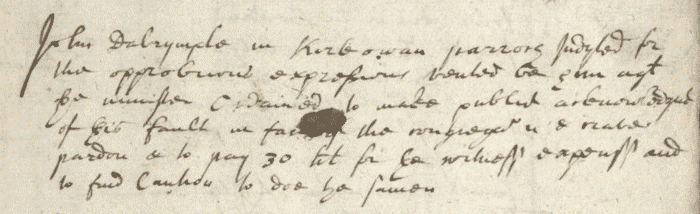 John Dalrymple in Kirkowan parroch Indyted for
the opprobrious expressions vented be him agt
the minister Ordained to make publick acknowledgmt
of his fault in face of the congregaᵒⁿ & crave
pardon & to pay 30 lib for the witness expenss and
to find Caution to doe the samen